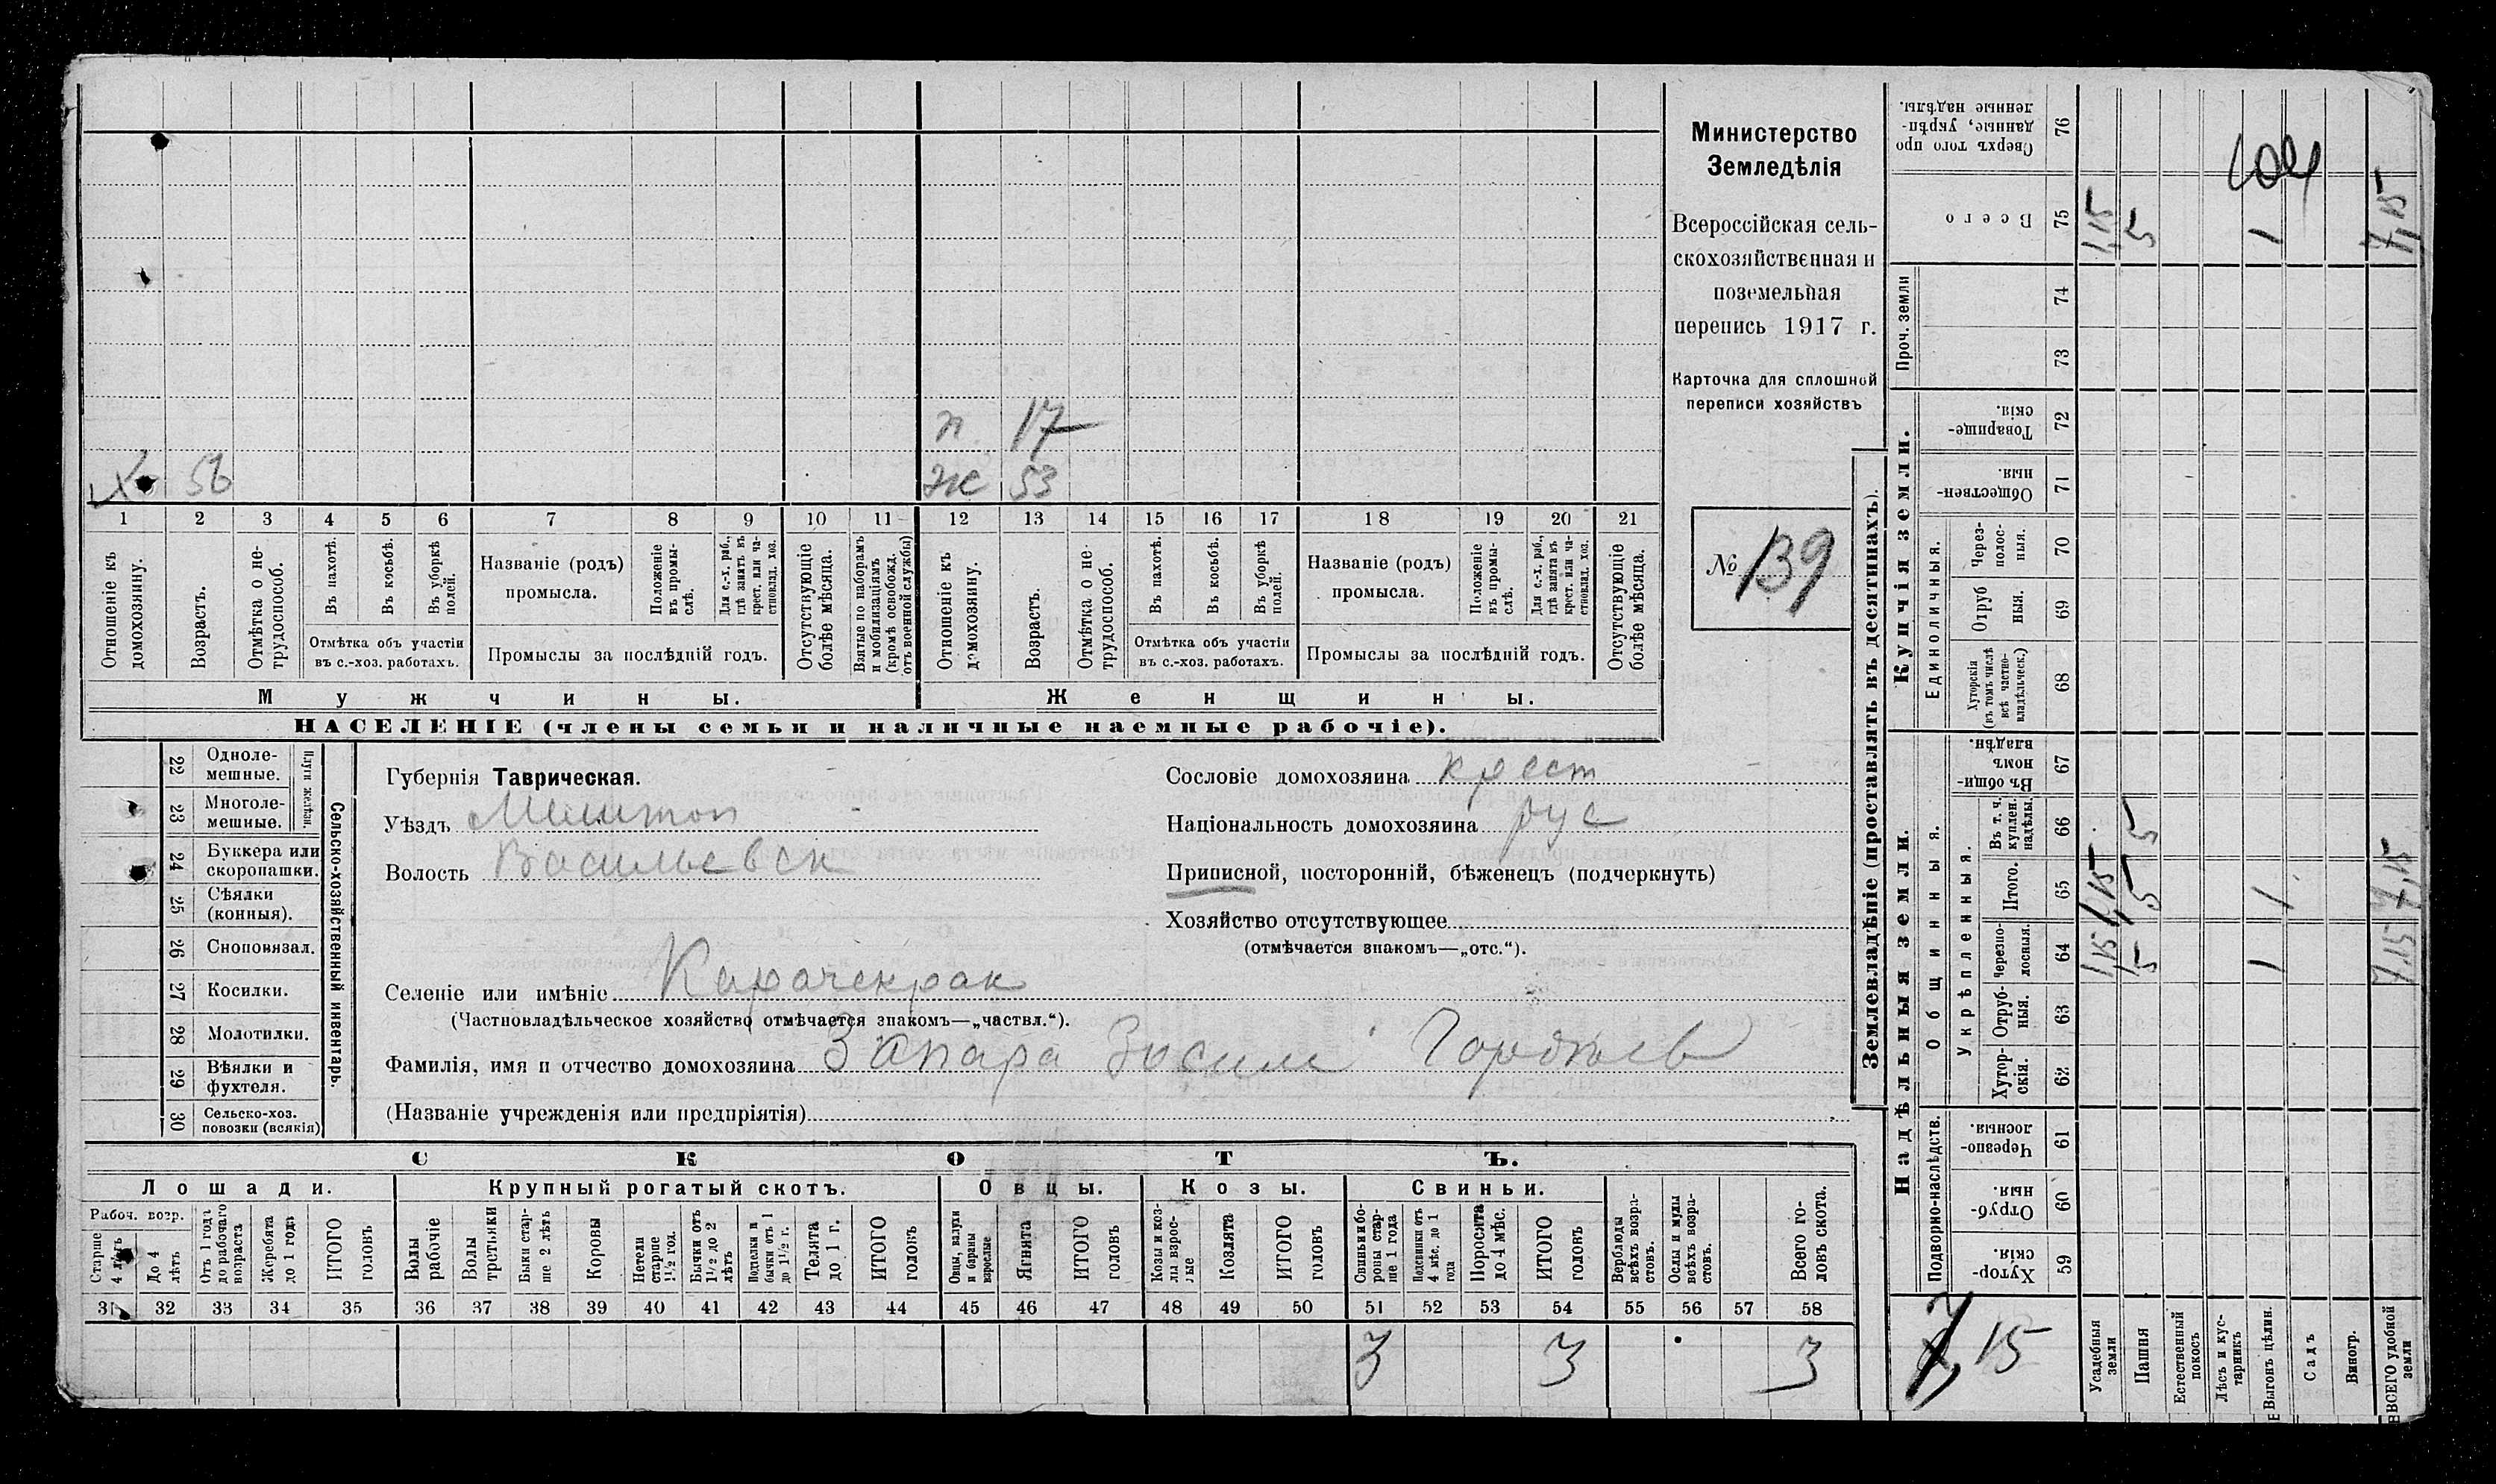 Министерство
Земледѣлія
Всероссійская сель-
скохозяйственная и
поземельная
перепись 1917 г.
Карточка для сплошной
переписи хозяйствъ
№ 139
п. 17
х 56 ж 53
1 2 3 4 5 6 7 8 9 10 11 12 13 14 15 16 17 18 19 20 21
Отношеніе къ домохозяину.
Возрастъ.
Отмѣтка о не-трудоспособ.
Въ пахотѣ.
Въ косьбѣ.
Въ уборкѣ полей.
Отмѣтка объ участіи
въ с.-хоз. работахъ.
Названіе (родъ)
промысла.
Положеніе въ промы-слѣ.
Для с.-х. раб., гдѣ занятъ въ крест. или ча-стновлад. хоз.
Промыслы за послѣдній годъ.
Отсутствующіе болѣе мѣсяца.
Взятые по наборамъ и мобилизаціямъ (кромѣ освобожд. отъ военной службы)
Отношеніе къ домохозяину.
Возрастъ.
Отмѣтка о не-трудоспособ.
Въ пахотѣ.
Въ косьбѣ.
Въ уборкѣ полей.
Отмѣтка объ участіи
въ с.-хоз. работахъ.
Названіе (родъ)
промысла.
Положеніе въ промы-слѣ.
Для с.-х. раб., гдѣ занята въ крест. или ча-стновлад. хоз.
Промыслы за послѣдній годъ.
Отсутствующіе болѣе мѣсяца.
Мужчины. Женщины.
НАСЕЛЕНІЕ (члены семьи и наличные наемные рабочіе).
22 Одноле-мешные.
23 Многоле-мешные.
Плуги желѣзн.
24 Буккера или скоропашки.
25 Сѣялки (конныя).
26 Сноповязал.
27 Косилки.
28 Молотилки.
29 Вѣялки и фухтеля.
30 Сельско-хоз. повозки (всякія)
Сельско-хозяйственный инвентарь.
Губернія Таврическая.
Уѣздъ Мелитоп
Волость Васильевск
Сословіе домохозяина крест
Національность домохозяина рус
Приписной, посторонній, бѣженецъ (подчеркнуть)
Хозяйство отсутствующее
(отмѣчается знакомъ—„отс.“).
Селеніе или имѣніе Карачекрак
(Частновладѣльческое хозяйство отмѣчается знакомъ—„частвл.“).
Фамилія, имя и отчество домохозяина Запара Зосим Гордѣев
(Названіе учрежденія или предпріятія)
СКОТЪ.
Лошади. Крупный рогатый скотъ. Овцы. Козы. Свиньи.
Рабоч. возр.
Старше 4 лѣтъ
До 4 лѣтъ
Отъ 1 года до рабочаго возраста
Жеребята до 1 года
ИТОГО головъ
Волы рабочіе
Волы третьяки
Быки стар-ше 2 лѣтъ
Коровы
Нетели старше 1½ год.
Бычки отъ 1½ до 2 лѣтъ
Водѣлки и бычки отъ 1 до 1½ г.
Телята до 1 г.
ИТОГО головъ
Овцы, валухи и бараны взрослые
Ягнята
ИТОГО головъ
Козы и коз-лы взрос-лые
Козлята
ИТОГО головъ
Свиньи и бо-ровы стар-ше 1 года
Подсвинки отъ 4 мѣс. до 1 года
Поросята до 4 мѣс.
ИТОГО головъ
Верблюды всѣхъ возра-стовъ.
Ослы и мулы всѣхъ возра-стовъ.
Всего го-ловъ скота.
31 32 33 34 35 36 37 38 39 40 41 42 43 44 45 46 47 48 49 50 51 52 53 54 55 56 57 58
3 3 3
Землевладѣніе (проставлять въ десятинахъ).
Купчія земли.
Надѣльныя земли.
Сверхъ того про данные, укрѣп-ленные надѣлы. 76
104
Всего 75 1,15 5 1 7,15
Проч. земли 74
73
Товарище-скія. 72
Обществен-ныя. 71
Единоличныя.
Через-полос-ныя. 70
Отруб ныя. 69
Хуторскія (въ томъ числѣ всѣ частно-владѣльческ.) 68
Общинныя.
Въ общи-номъ владѣн. 67
Укрѣпленныя.
Въ т. ч. куплен. надѣлы. 66 5
Итого. 65 1,15 5 1 7,15
Черезпо-лосныя. 64 1,15 5 1 7,15
Отруб-ныя. 63
Хутор-скія. 62
Подворно-наслѣдств.
Черезпо-лосныя. 61
Отруб-ныя. 60
Хутор-скія. 59
7,15
Усадебныя земли
Пашня
Естественный покосъ
Лѣсъ и кус-тарникъ
Выгонъ цѣлин.
Садъ
Виногр.
ВСЕГО удобной земли